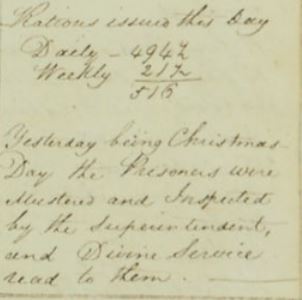 Rations issued this Day
Daily - 494½
Weekly 21½
516
Yesterday being Christmas
Day the Prisoners were
Mustered and Inspected
by the Superintendent,
and Divine Service
read to them.